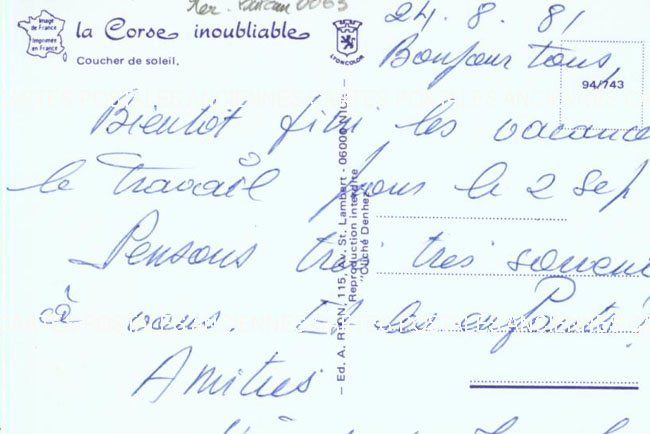 Image
de France
Imprimée
en France
la Corse inoubliable
Coucher de soleil.
LYONCOLOR
94/743
24. 8. 81
Bonjour tous
Bientot fini les vacance
le travail pour le 2 Sep
Pensons très très souven
à vous. Et les enfants?
Amitiés
— Ed. A. 115, Av. St. Lambert - 06000
Reproduction interdite
"Cliché Denher"